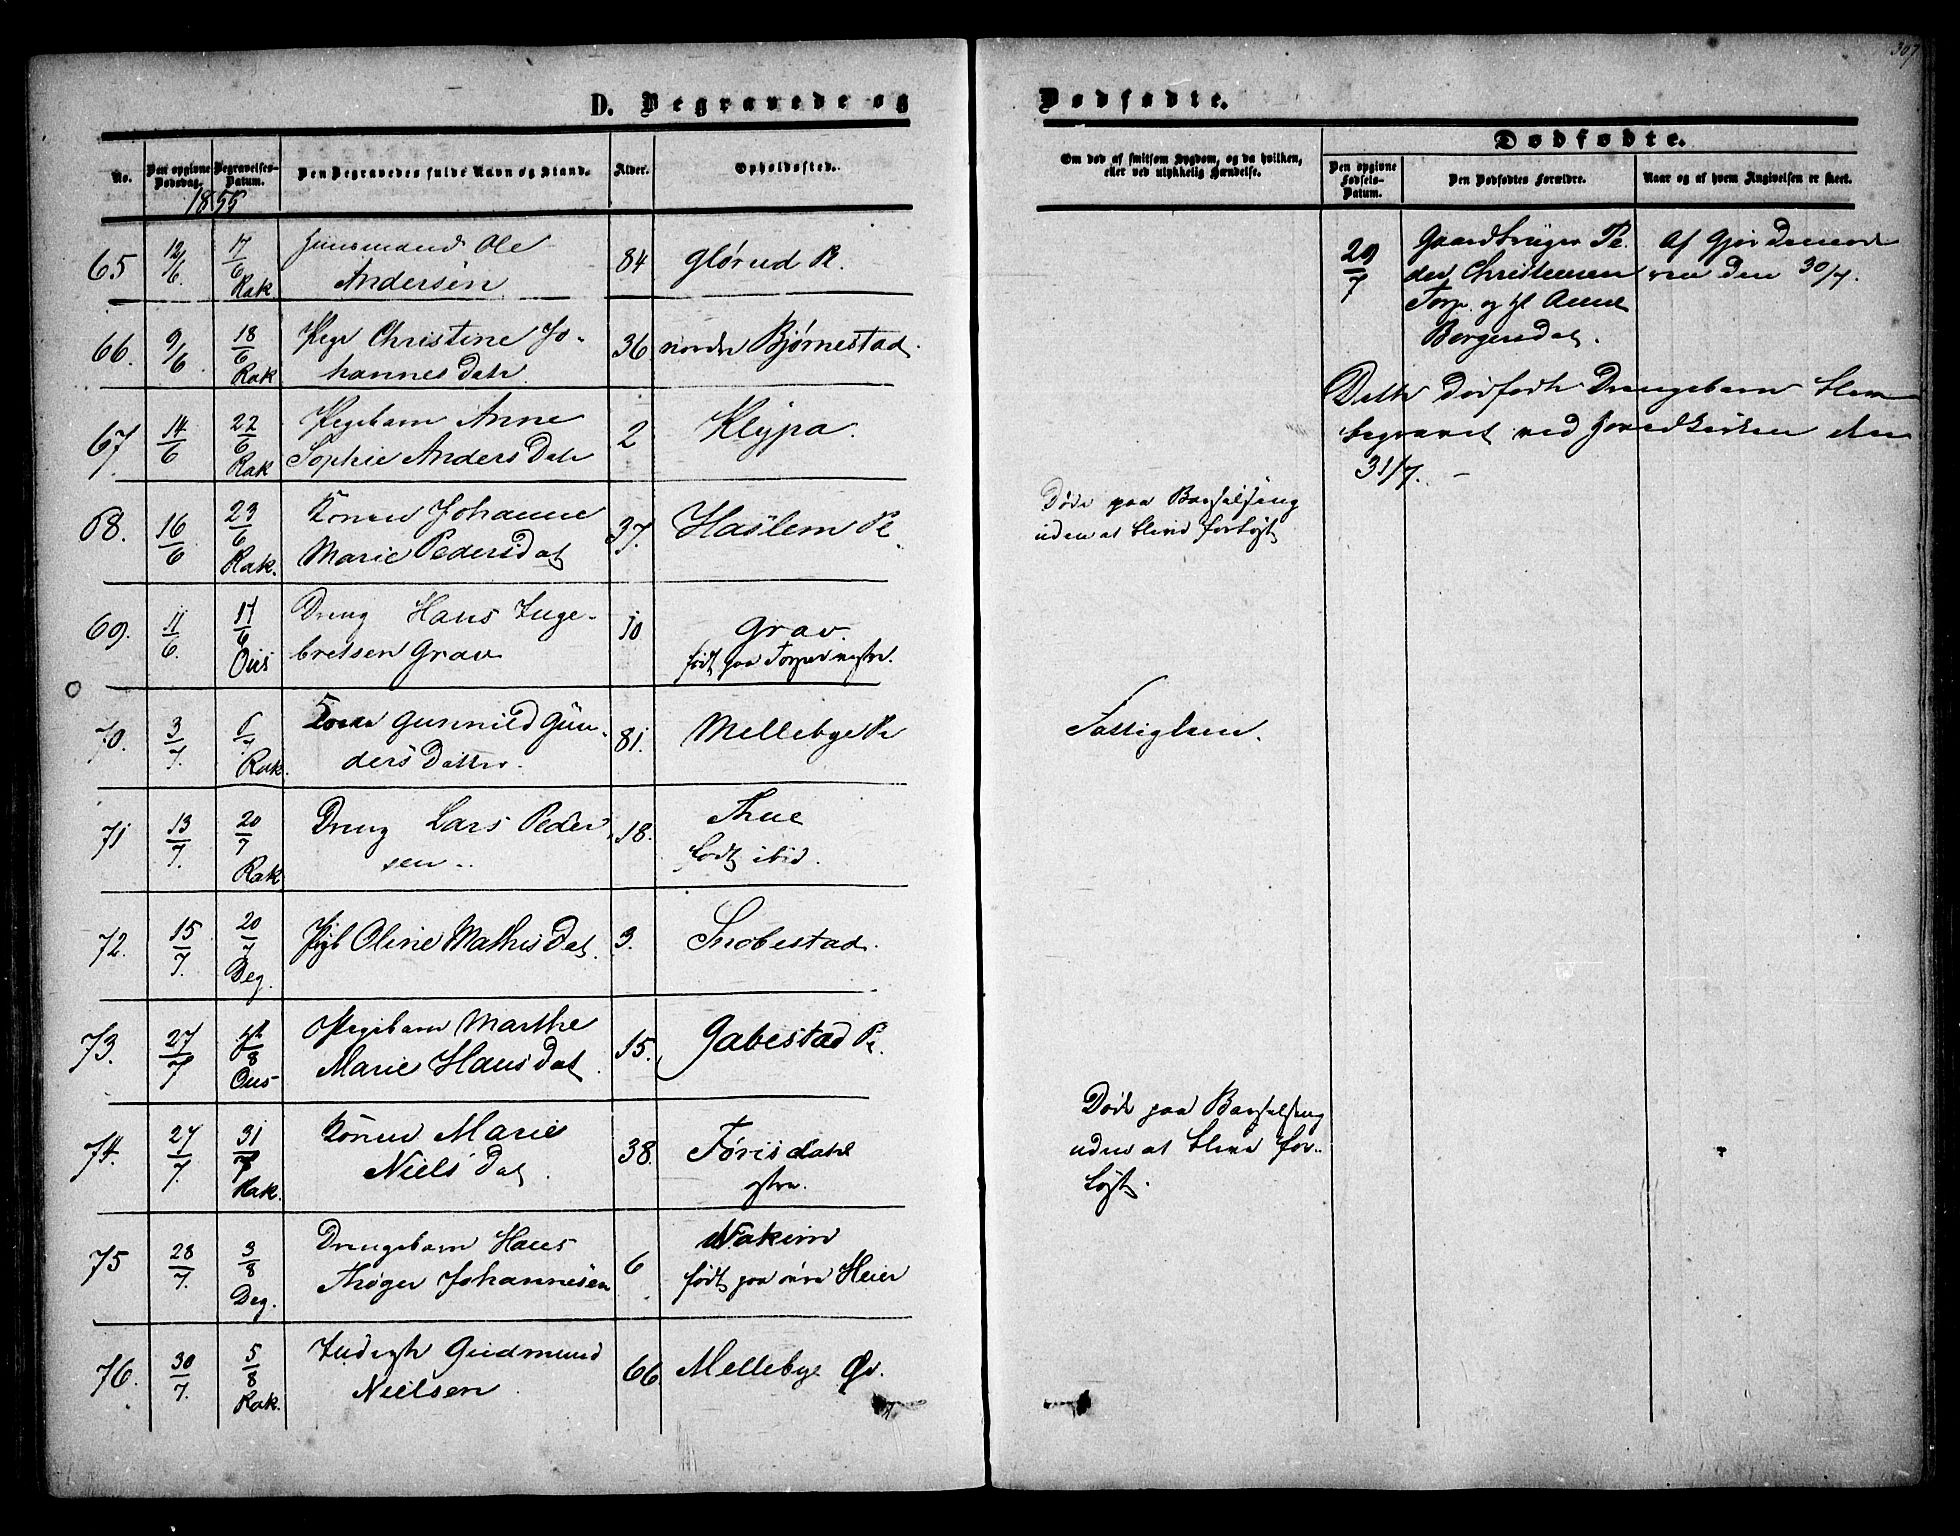 307
D. Begravede og Dødfødte.
No.
Den opgivne Dødsdag.
Begravelses-Datum.
Den Begravedes fulde Navn og Stand.
Alder.
Opholdssted.
Om død af smitsom Sygdom, og da hvilken,
eller ved ulykkelig Hændelse.
Dødfødte.
Den opgivne Fødsels-Datum.
Den Dødfødtes Forældre.
Naar og af hvem Angivelsen er skeet.
1855
65 12/6. 17/6 Rak
Ole
Andersen
84 Glørud P.
66. 9/6 18/6 Rak
Pige Christine Jo-
hannes Datr
36 nordre Bjørnestad.
67. 14/6 22/6 Rak
Pigebarn Anne
Sophie Anders Datr
2 Klÿpa.
68. 16/6 23/6 Rak.
Konen Johanne
Marie Pedersdat
37. Haslem Pl.
Døde paa Barselseng
uden at blive forløst
69. 11/6. 17/6 Ons
Dreng Hans Inge-
bretsen Grav
10 Grav.
født paa Torper vestre.
70. 3/7. 6/7 Rak.
Gunnild Gun-
ders Datter.
81. Mellebye Pl
Fattiglem.
71 13/7. 20/7 Rak
Dreng Lars Peder
sen..
18. Thue
født ibid.
72. 15/7. 20/7 Deg.
Pigb Oline Mathis Dat.
3. Snobestad.
73. 27/7 /8 Ons
Pigebarn Marthe
Marie Hans Dat.
15. Gabestad Pl.
74. 27/7. 31/7 Rak.
Konen Marie
Niels Dat.
38. Førisdahl
østre.
Døde paa Barselseng
uden at blive for-
løst.
75 28/7. 3/8 Deg.
Drengebarn Hans
Thøger Johannesen
6. Nakim
født paa øvre Heier
76. 30/7. 5/8 Rak.
Inderst Gudmund
Nielsen.
66. Mellebye Øv.
29/7
Gaardbruger Pe-
der Christensen
Torp og H. Anne
Borgersdat.
Af Gjordemode
ren den 30/7.
Dette dødfødte Drengebarn blev
begravet ved Hovedkirken den
31/7. –